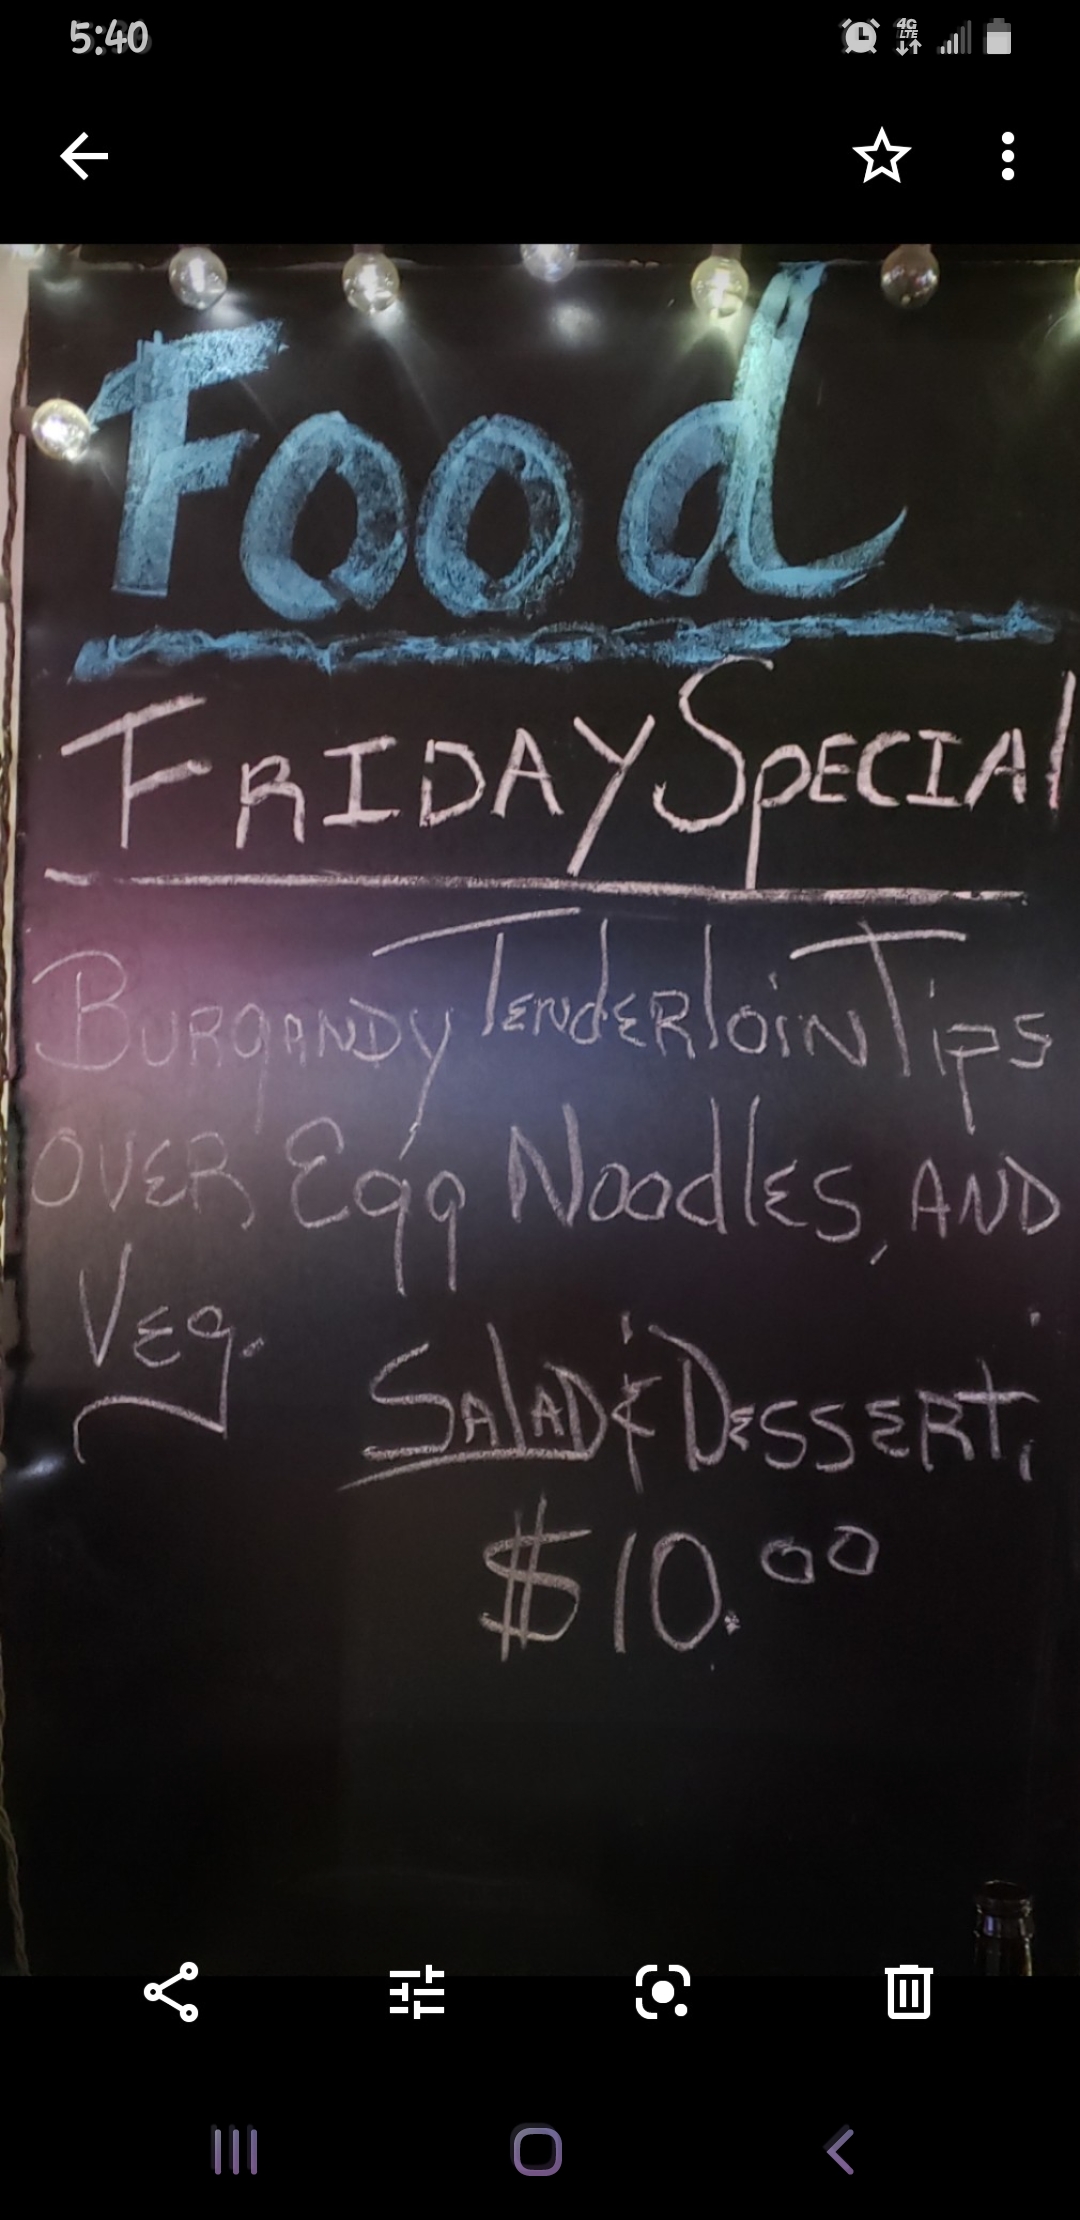 5:40
4G
LTE
Food
FRIDAY SPECIAl
BURGANDY TENdERloiN Tips
OVER Egg NoodlES, AND
VEg.
SAlAD & DESSERt,
$10.00